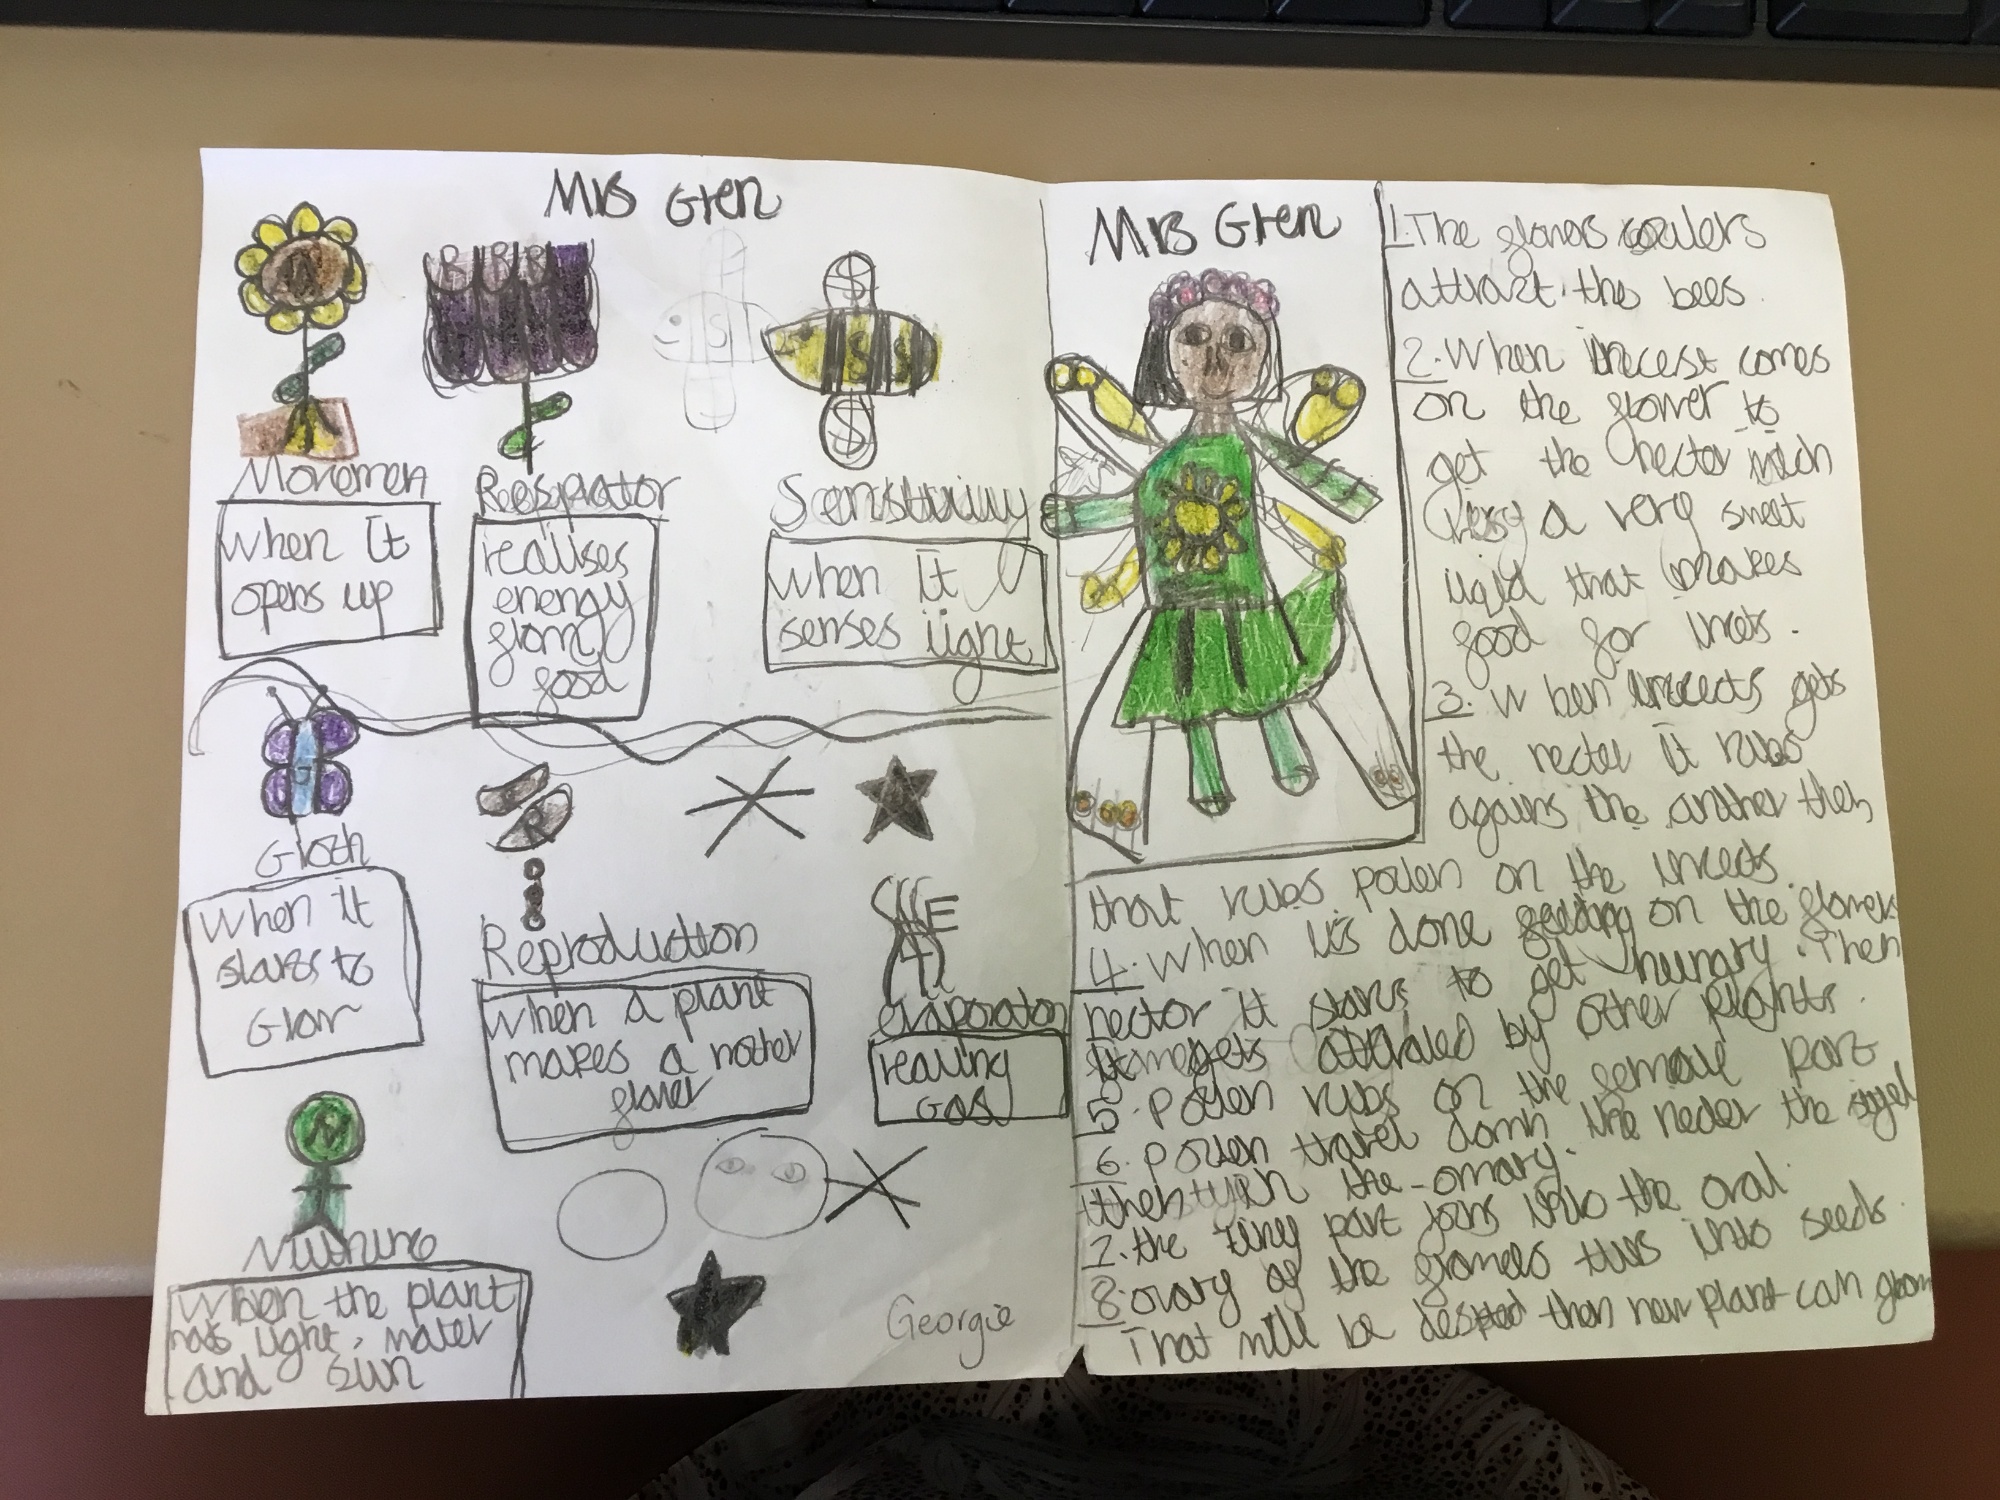 Mrs Gren
M
R R R
S
S S S
Movemen
When It
opens up
Respirator
realises
energy
from
food
Senstivity
when It
senses light
G
Groth
When it
stars to
Grow
R
Reproduction
When a plant
makes a nother
flower
E
evaporaton
realing
Gas
N
Nutrhine
When the plant
has light, water
and Sun
Georgie
Mrs Gren
1. The flowers coulers
attract the bees
2. When incest comes
on the flower to
get the necter wich
is a very sweet
liqid that makes
food for incets.
3. When incects gets
the necter it rubs
agains the anther then
that rubs pollen on the incects.
4. When it's done feeding on the flowers
nector it stars to get hungry. Then
gets attraled by other plants.
5. Pollen rubs on the female part
6. Pollen travel down the necter the stigel
then the omary.
7. the tiny part joins into the oval.
8. ovary of the flowers tus into seeds.
That will be despted then new plant can grow